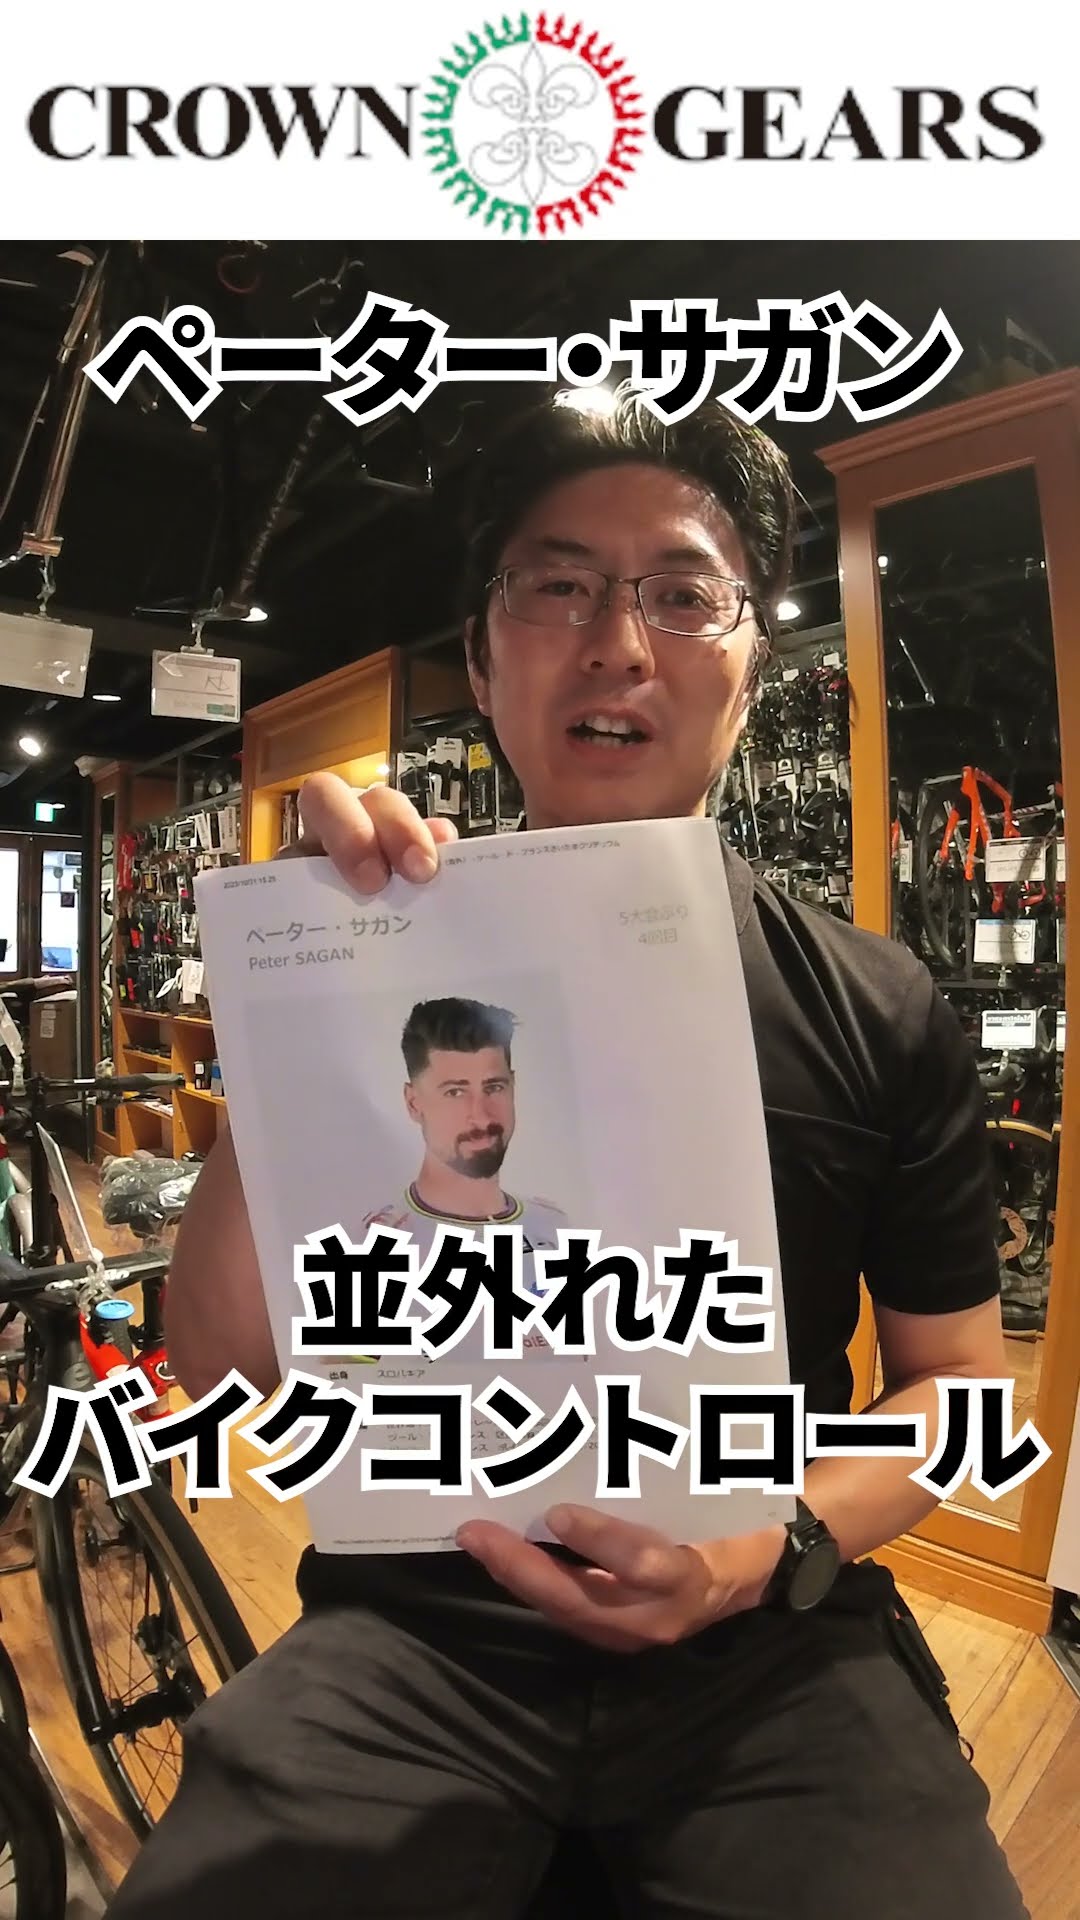 CROWN GEARS
ペーター・サガン
2023/10/31 15:25
ペーター・サガン
Peter SAGAN
5大会ぶり
4回目
並外れた
出身 スロバキア
バイクコントロール